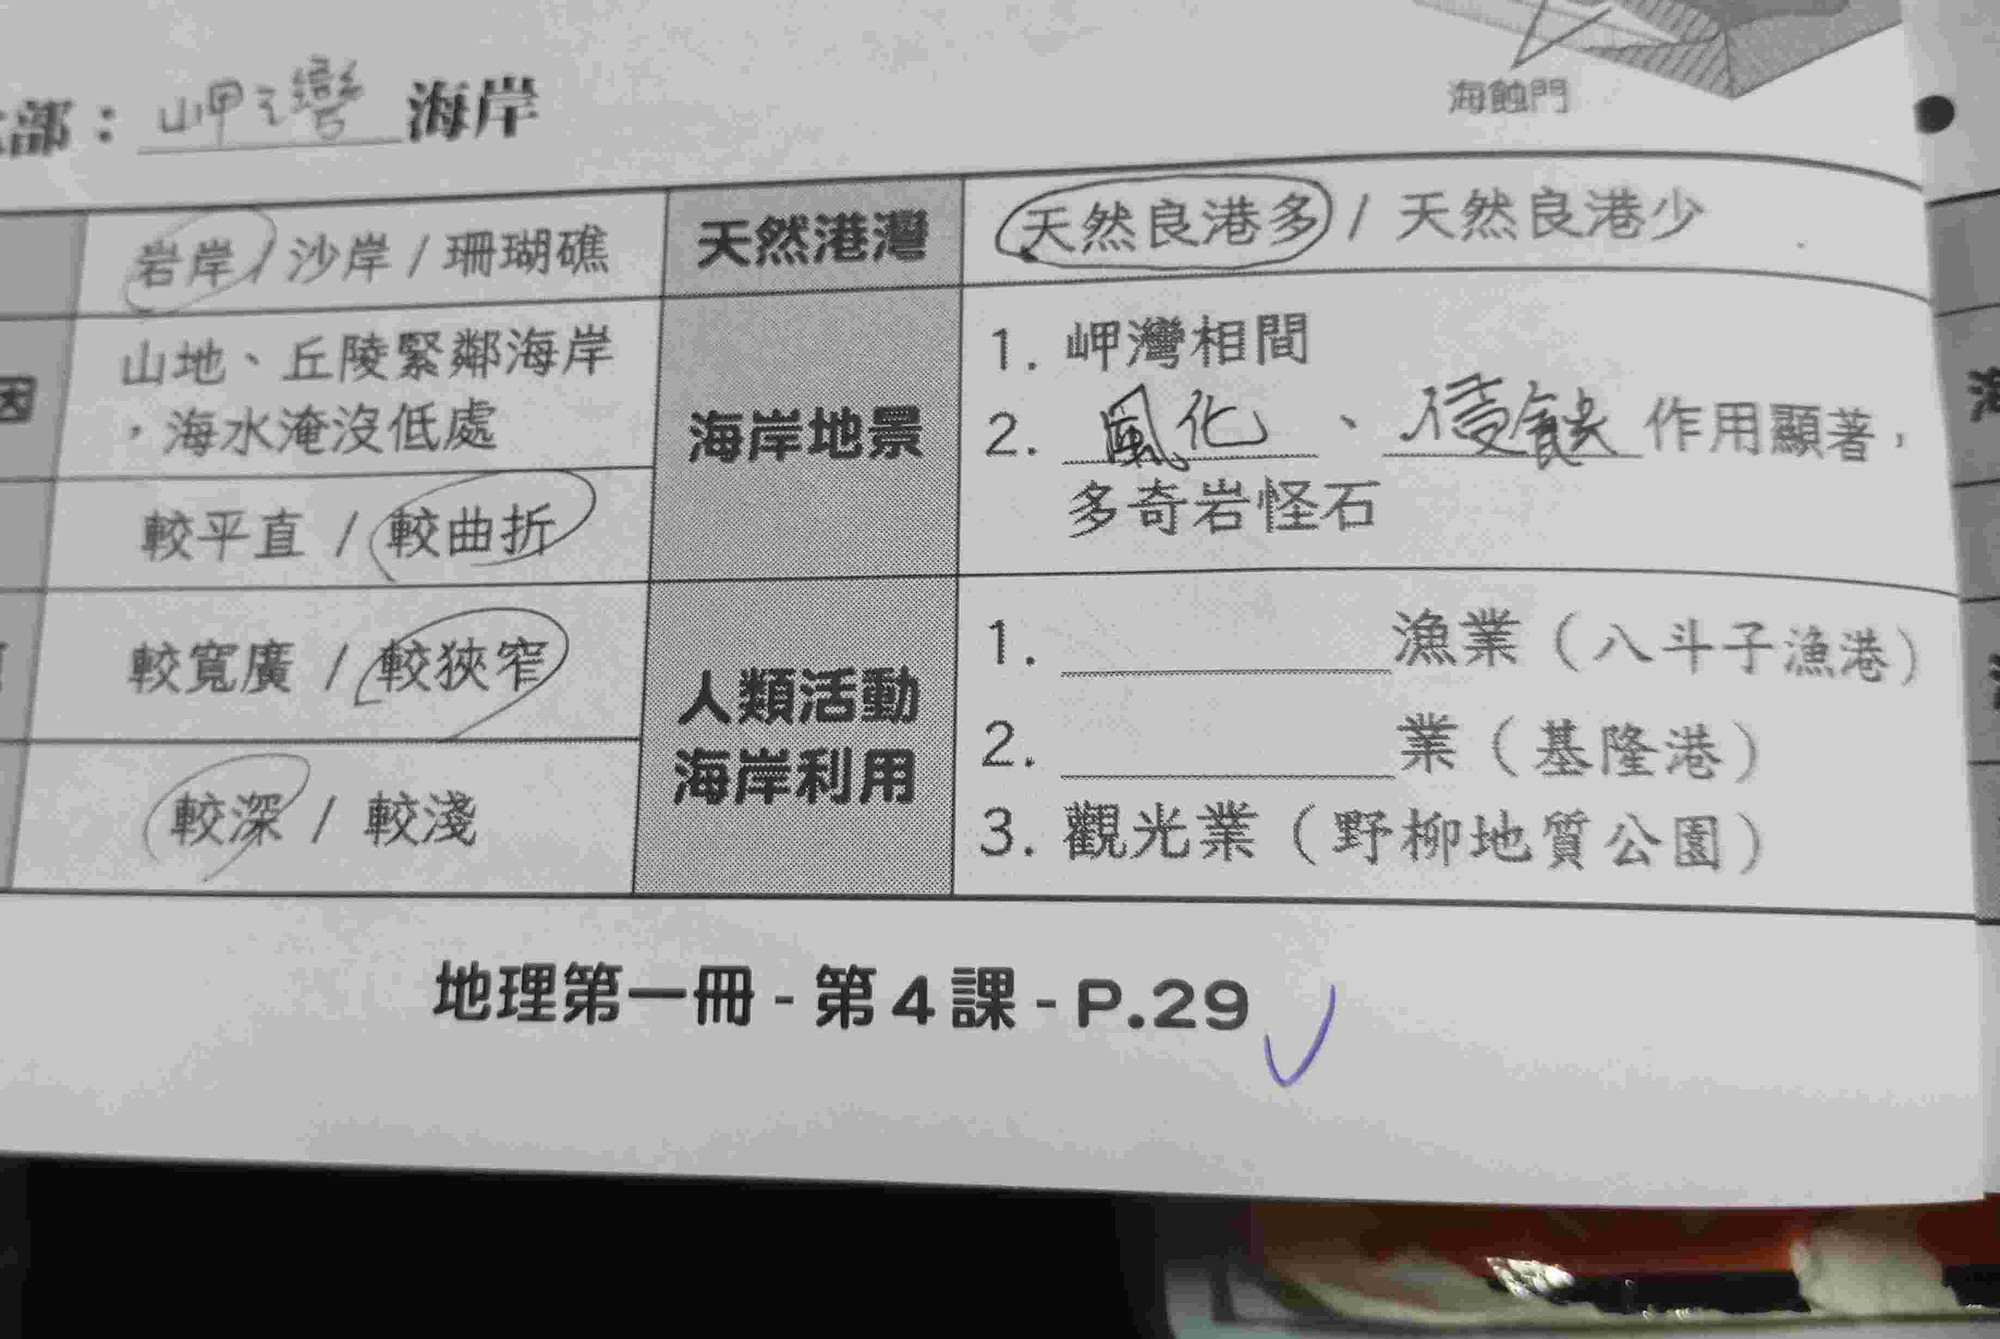 部：岬灣海岸
海蝕門
岩岸 / 沙岸 / 珊瑚礁
天然港灣
天然良港多 / 天然良港少
因
山地、丘陵緊鄰海岸
，海水淹沒低處
海岸地景
1. 岬灣相間
2. 風化、侵蝕作用顯著，
多奇岩怪石
較平直 / 較曲折
較寬廣 / 較狹窄
較深 / 較淺
人類活動
海岸利用
1. ＿＿＿＿漁業（八斗子漁港）
2. ＿＿＿＿業（基隆港）
3. 觀光業（野柳地質公園）
地理第一冊 - 第 4 課 - P.29